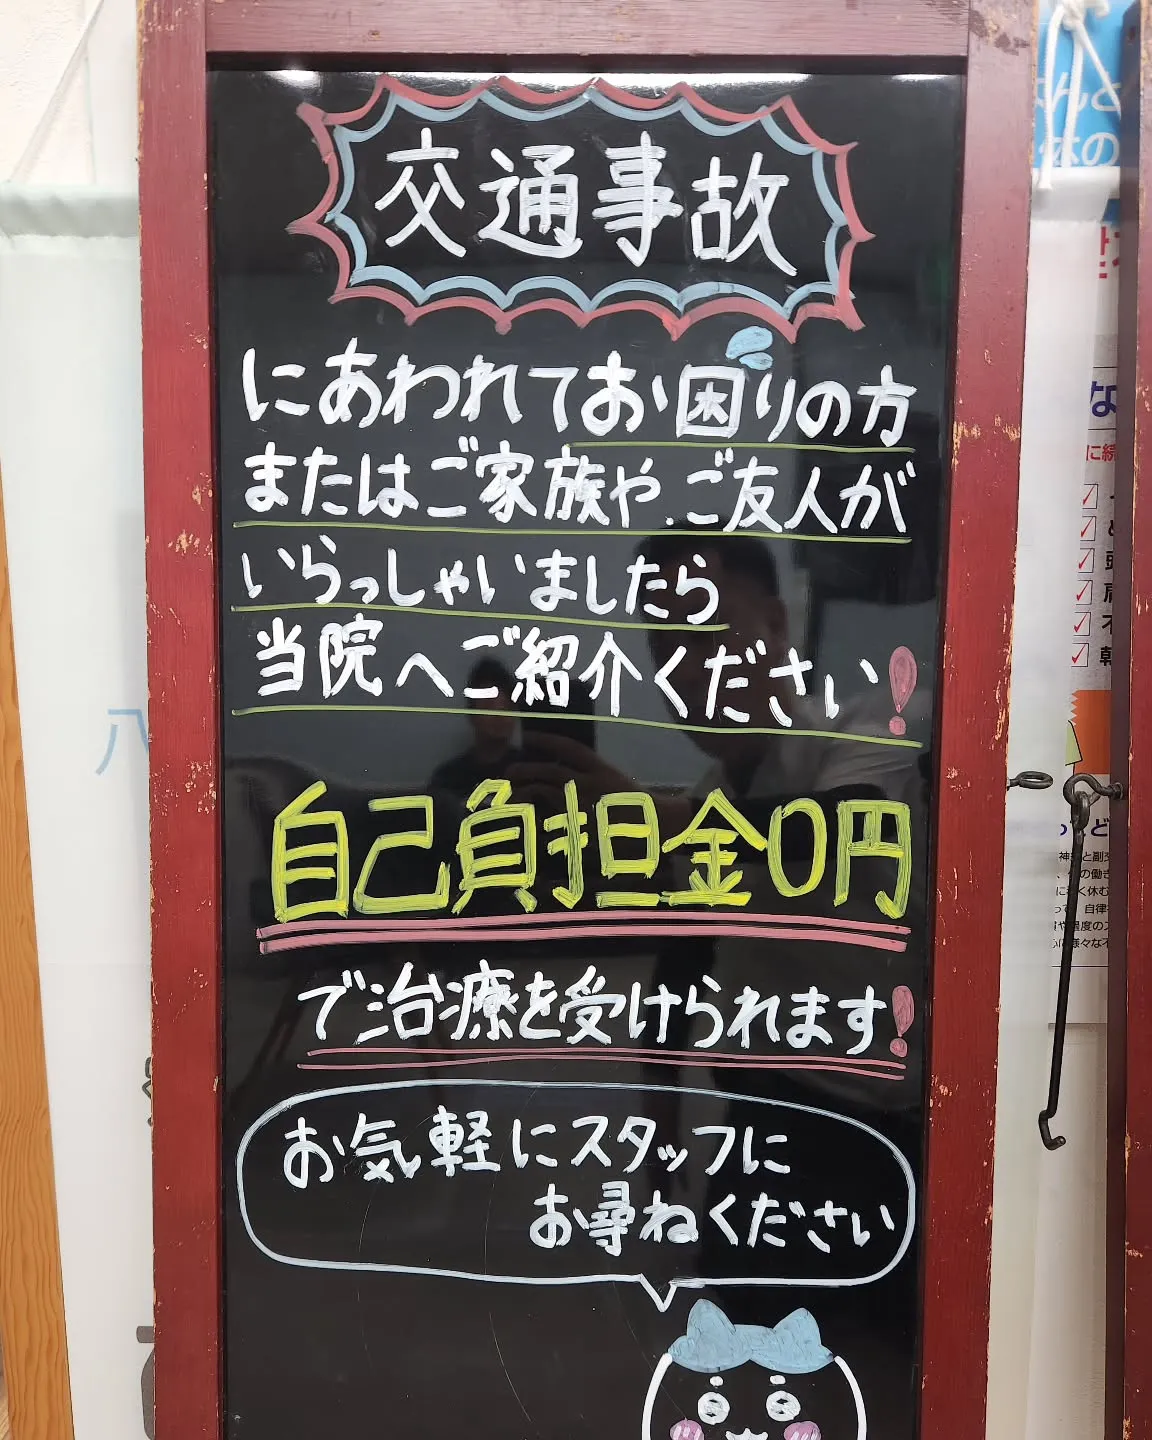 交通事故
にあわれてお困りの方
またはご家族や、ご友人が
いらっしゃいましたら
当院へご紹介ください!
自己負担金0円
で治療を受けられます!
お気軽にスタッフに
お尋ねください
八
体の